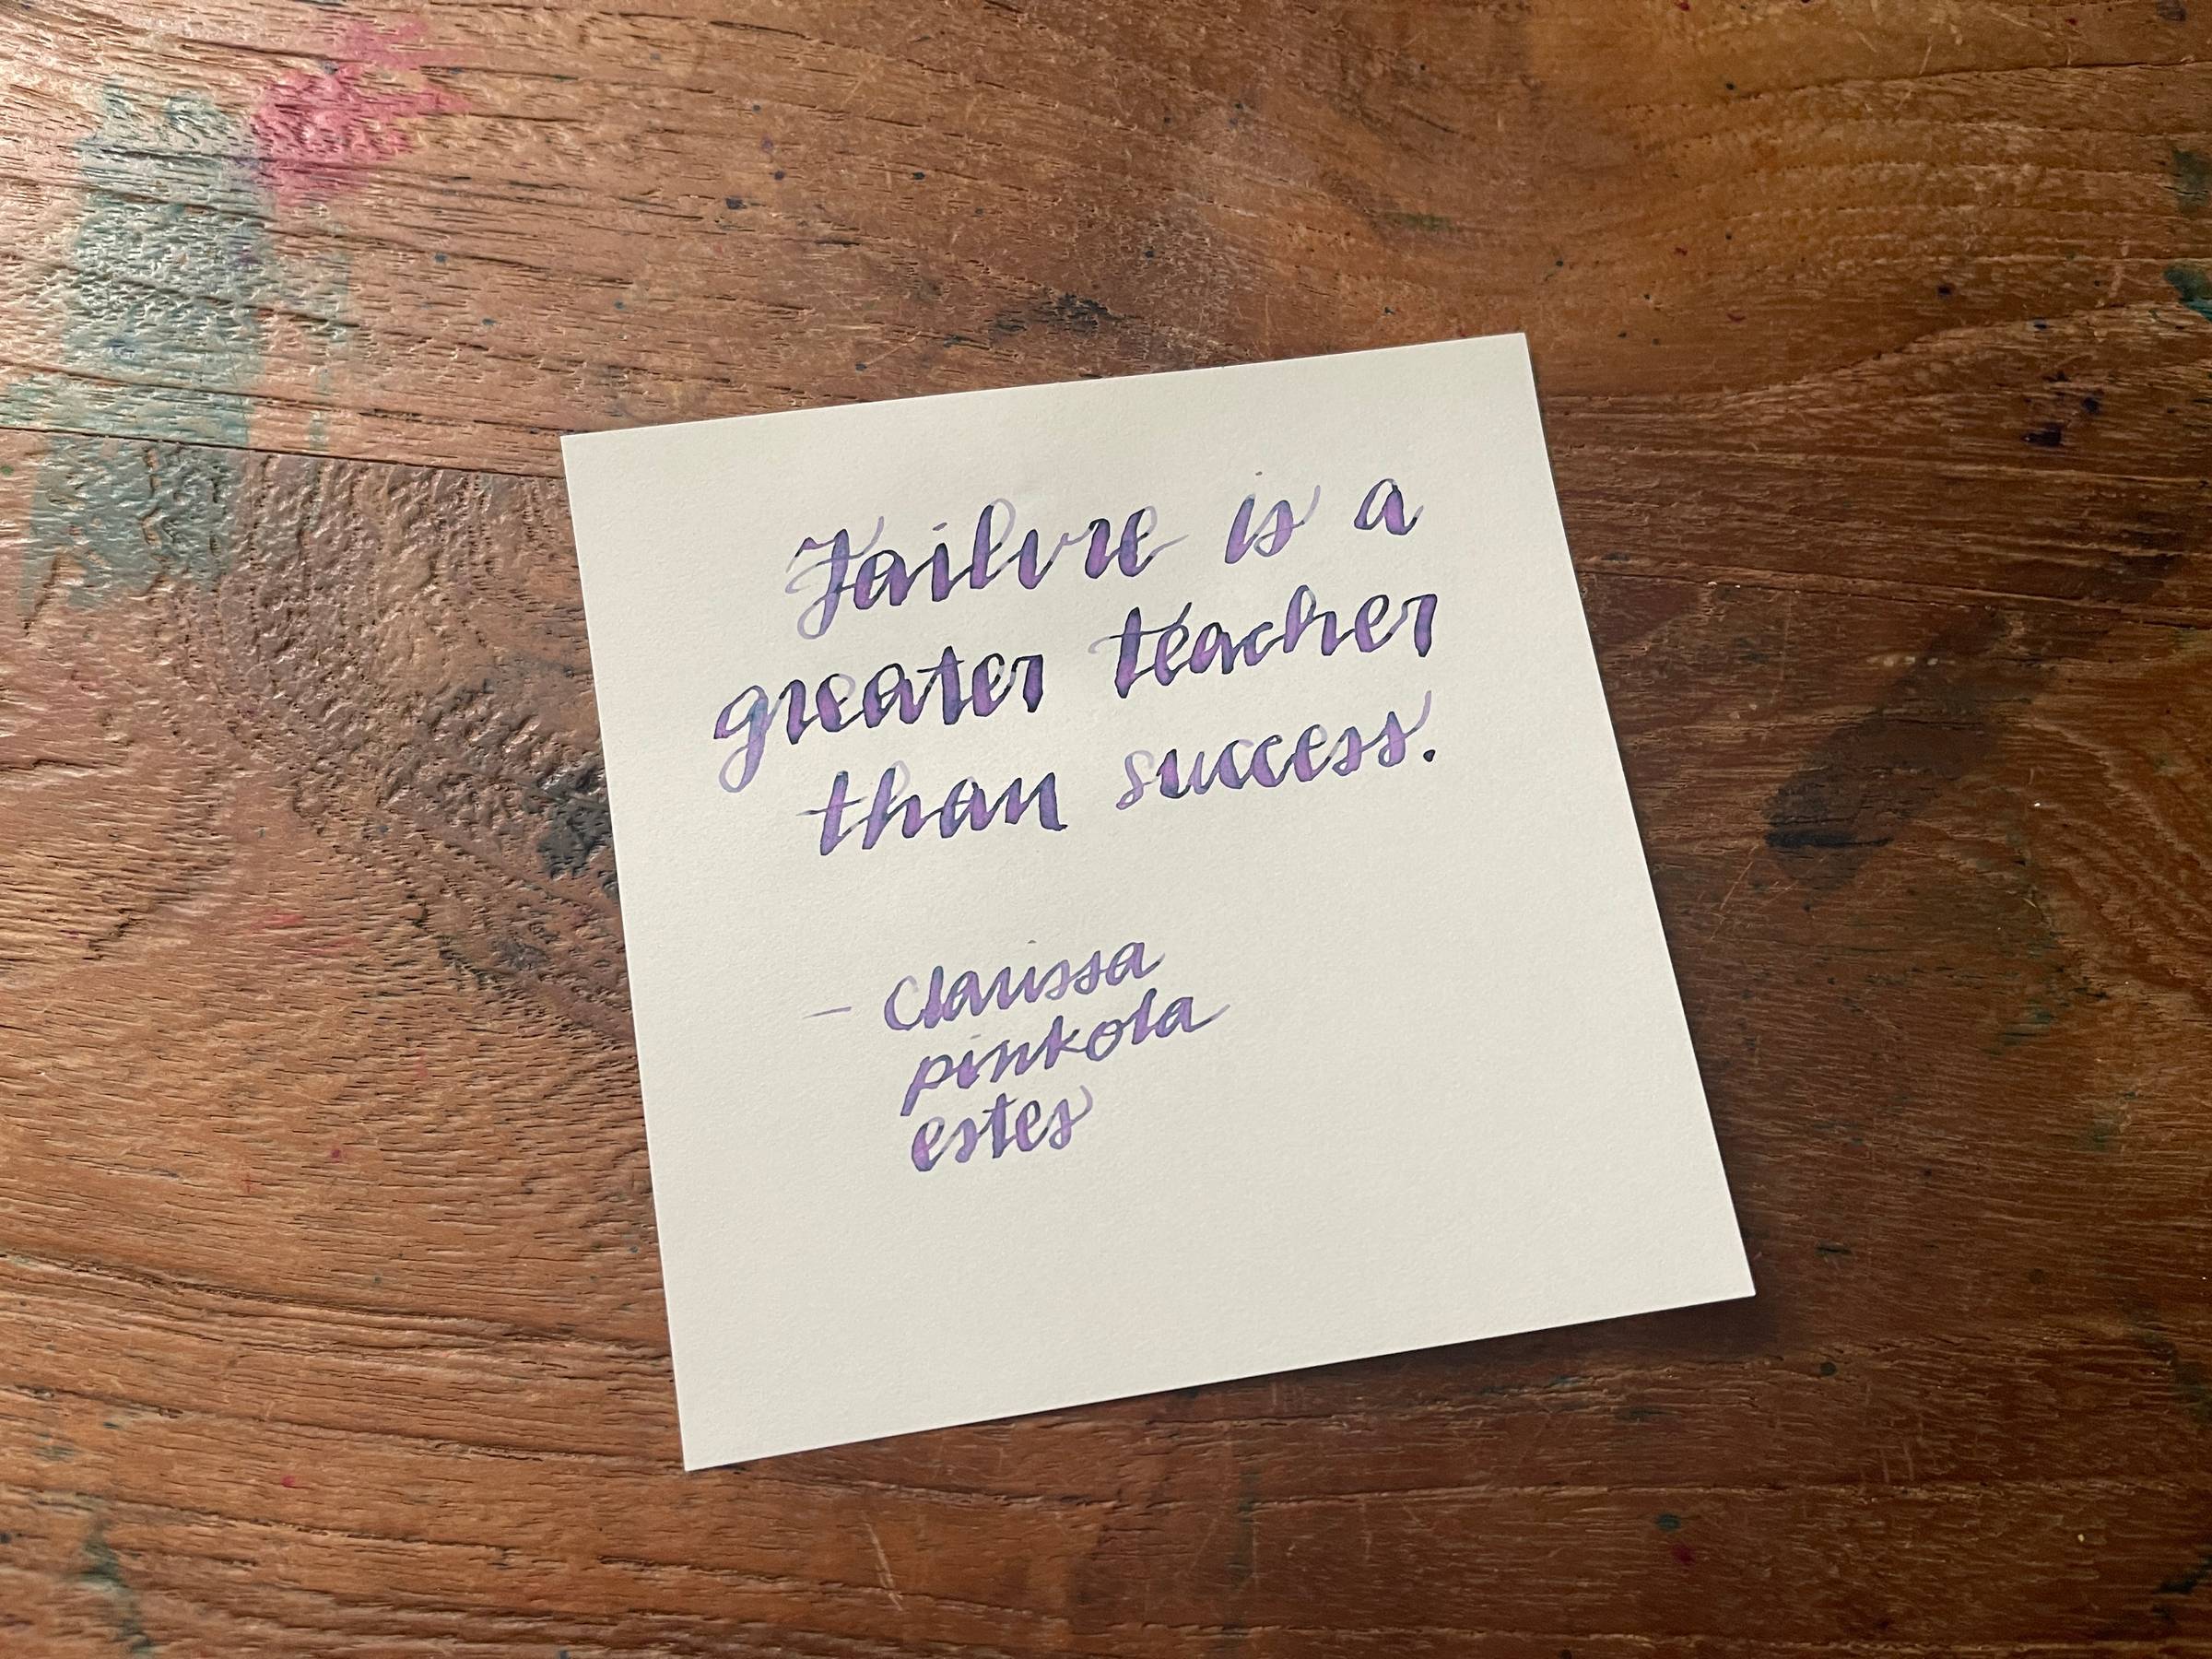 Failure is a
greater teacher
than success.
– Clarissa
pinkola
estes